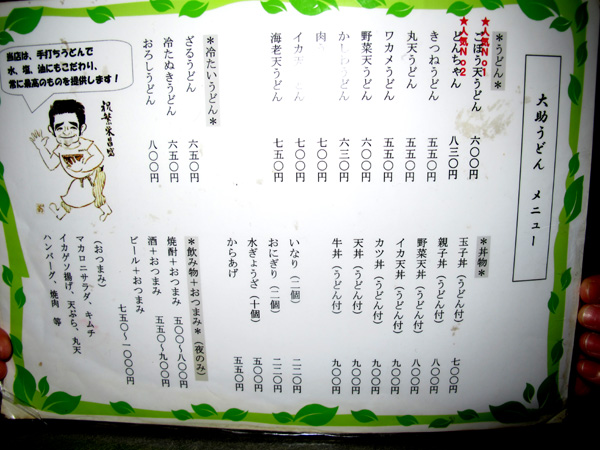 大助うどん　メニュー
＊うどん＊
★人気No1
ごぼう天うどん　六〇〇円
★人気No2
どんちゃん　八三〇円
きつねうどん　五五〇円
丸天うどん　五五〇円
ワカメうどん　五五〇円
野菜天うどん　六〇〇円
かしわうどん　六三〇円
肉　うどん　七〇〇円
イカ天　どん　七〇〇円
海老天うどん　七五〇円
＊冷たいうどん＊
ざるうどん　六五〇円
冷たぬきうどん　六五〇円
おろしうどん　八〇〇円
当店は、手打ちうどんで
水、塩、油にもこだわり、
常に最高のものを提供します！
祝繁栄昌盛
＊丼物＊
玉子丼（うどん付）　七〇〇円
親子丼（うどん付）　八〇〇円
野菜天丼（うどん付）　八〇〇円
イカ天丼（うどん付）　九〇〇円
カツ丼（うどん付）　九〇〇円
天丼（うどん付）　九〇〇円
牛丼（うどん付）　九〇〇円
いなり（二個）　二二〇円
おにぎり（二個）　二二〇円
水ぎょうざ（十個）　五〇〇円
からあげ　五五〇円
＊飲み物＋おつまみ＊（夜のみ）
焼酎＋おつまみ　五〇〇～八〇〇円
酒＋おつまみ　五五〇～九〇〇円
ビール＋おつまみ
七五〇～一〇〇〇円
（おつまみ）
マカロニサラダ、キムチ
イカゲソ揚げ、天ぷら、丸天
ハンバーグ、焼肉　等